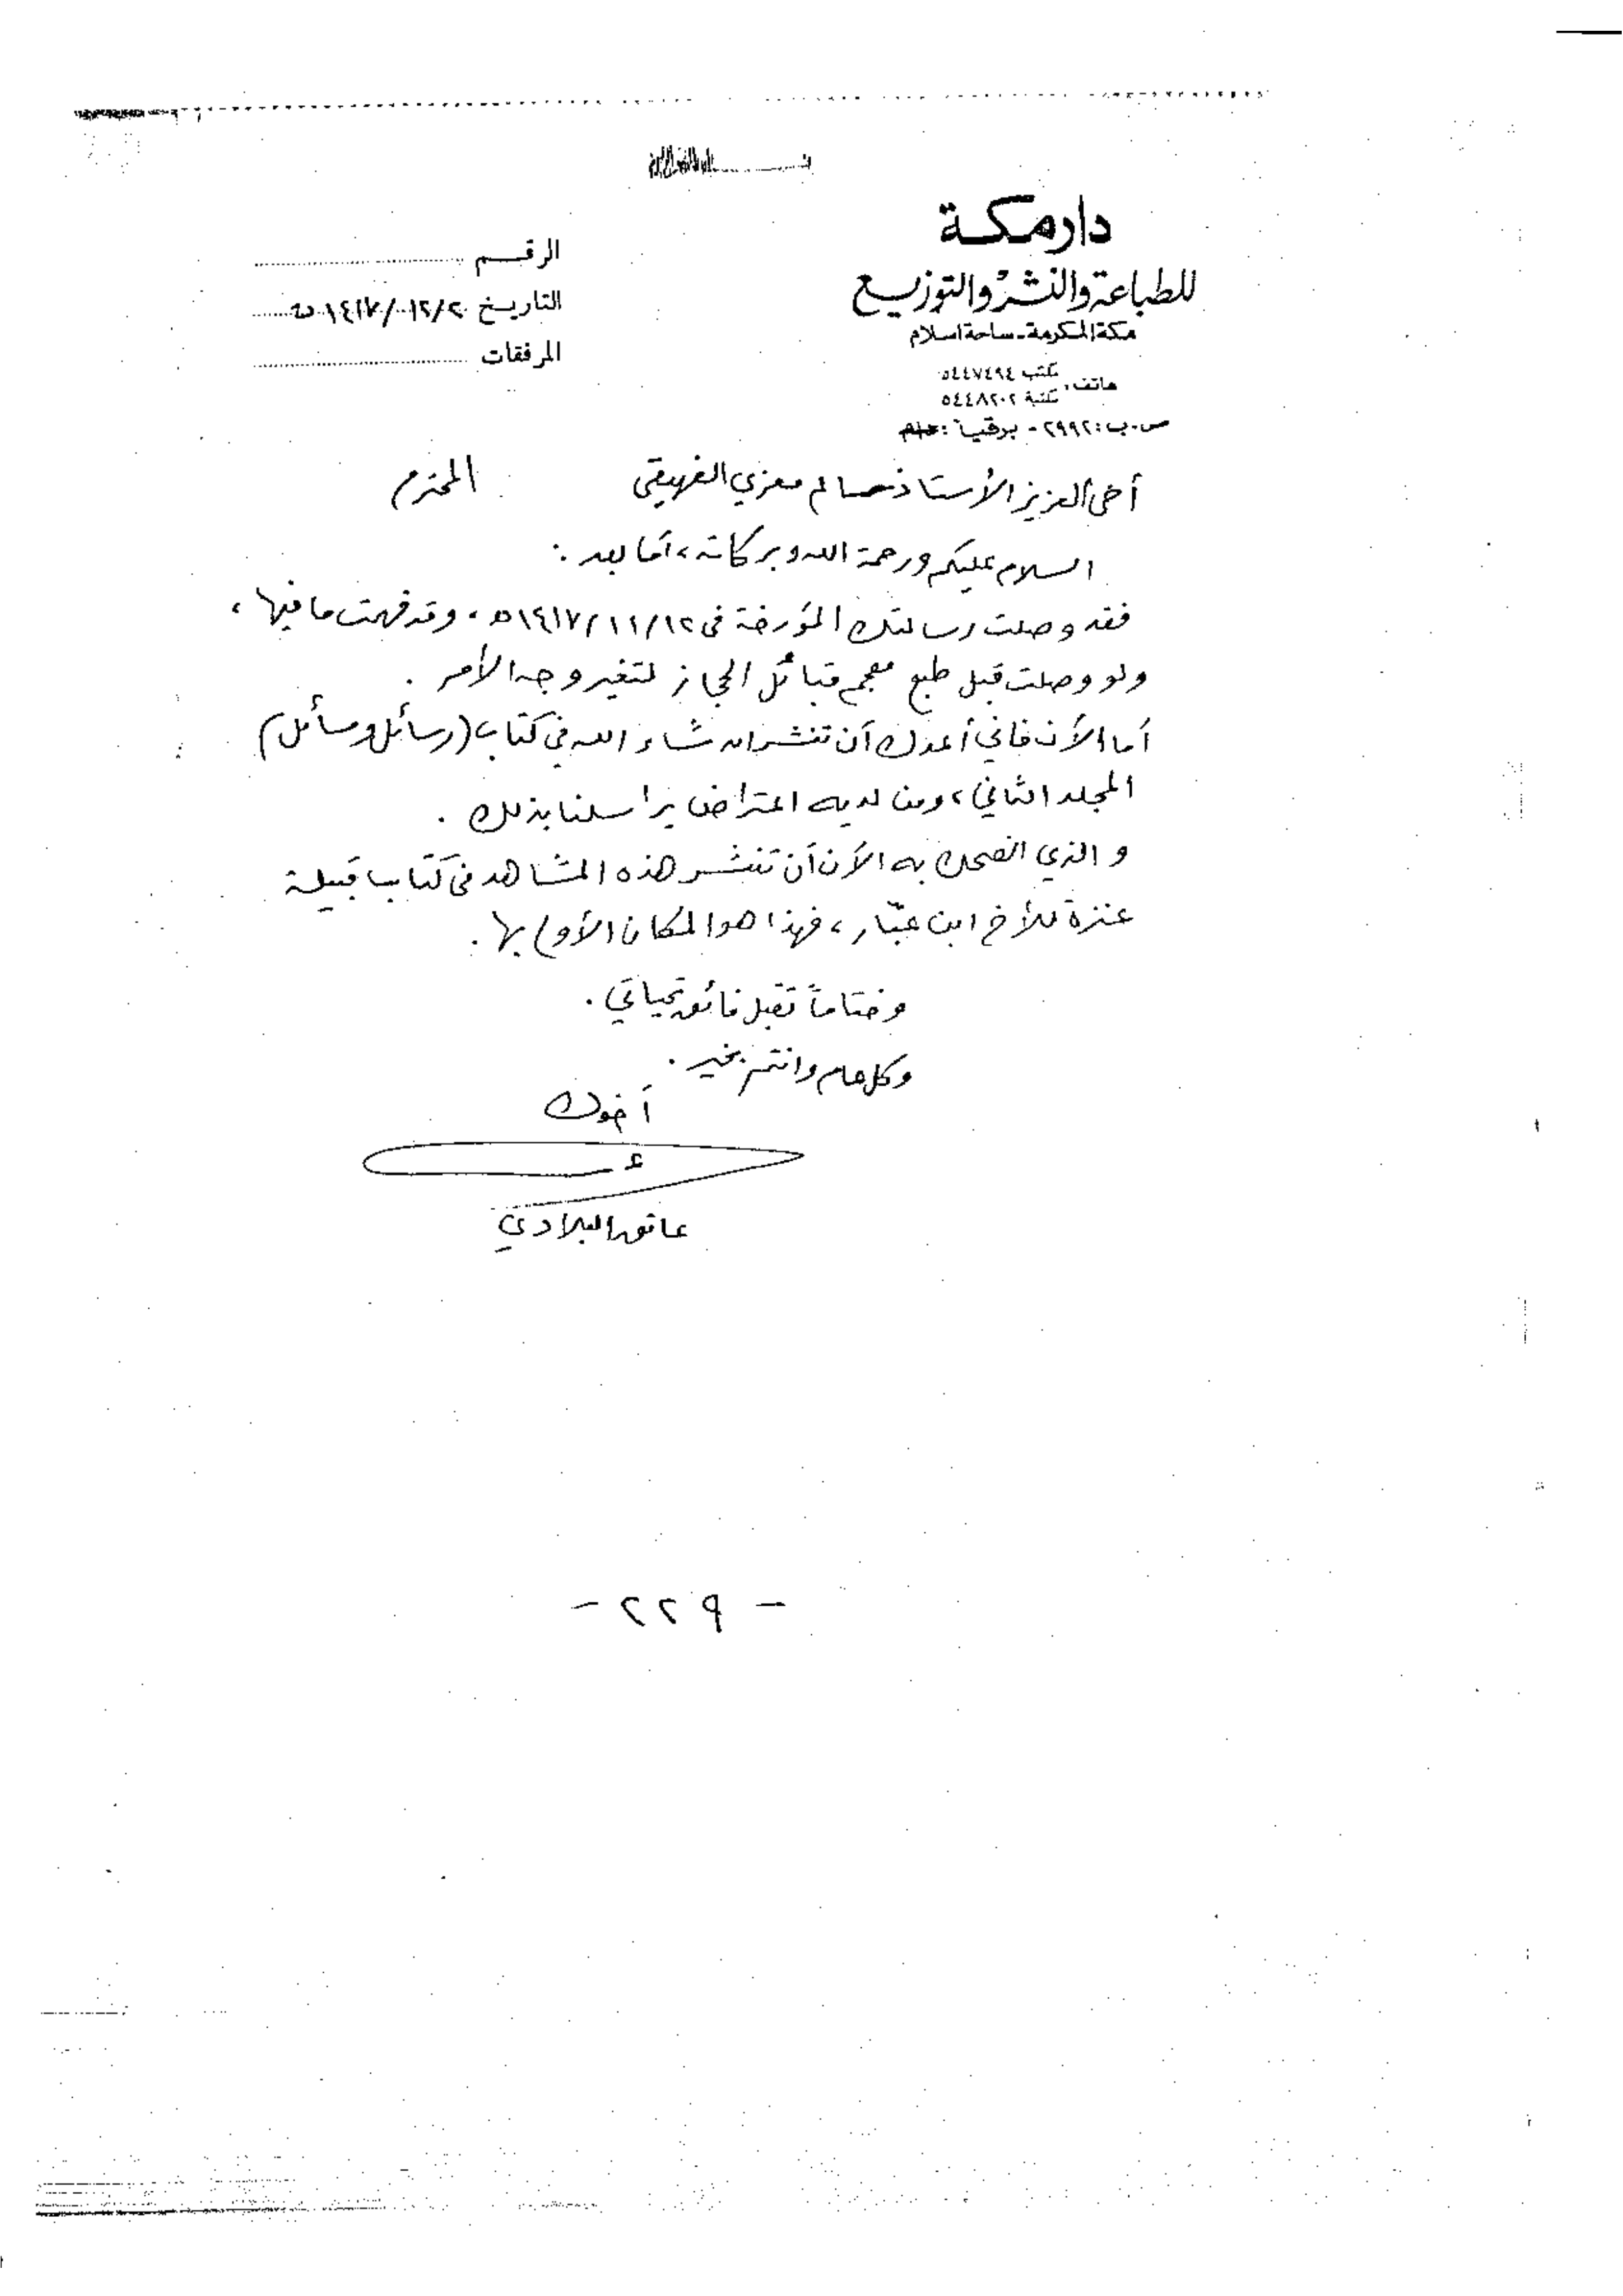 دار مكة
للطباعة والنشر والتوزيع
مكة المكرمة - ساحة اسلام
هاتف: مكتب ٥٤٤٧٤٩٤
مكتبة ٥٤٤٨٢٠٢
ص.ب: ٢٩٩٢ - برقياً:
الرقم
التاريخ ٢٠/١٢/١٤١٧هـ
المرفقات
أخي العزيز الأستاذ معزي الفهيقي المحترم
السلام عليكم ورحمة الله وبركاته، أما بعد:
فقد وصلت رسالتك المؤرخة في ١٢/١١/١٤١٧هـ، وقد فهمت ما فيها،
ولو وصلت قبل طبع معجم قبائل الحجاز لتغير وجه الأمر.
أما الآن فاني أعدك أن تنشر ان شاء الله في كتاب (رسائل ومسائل)
المجلد الثاني، ومن لديه اعتراض يراسلنا بذلك.
والذي انصحك به الآن أن تنشر هذه المشاهد في كتاب قبيلة
عنزة للأخ ابن عبّار، فهذا هو المكان الأولى بها.
وختاماً تقبل فائق تحياتي.
وكل عام وانتم بخير.
أخوك
عاتق البلادي
- ٢٢٩ -